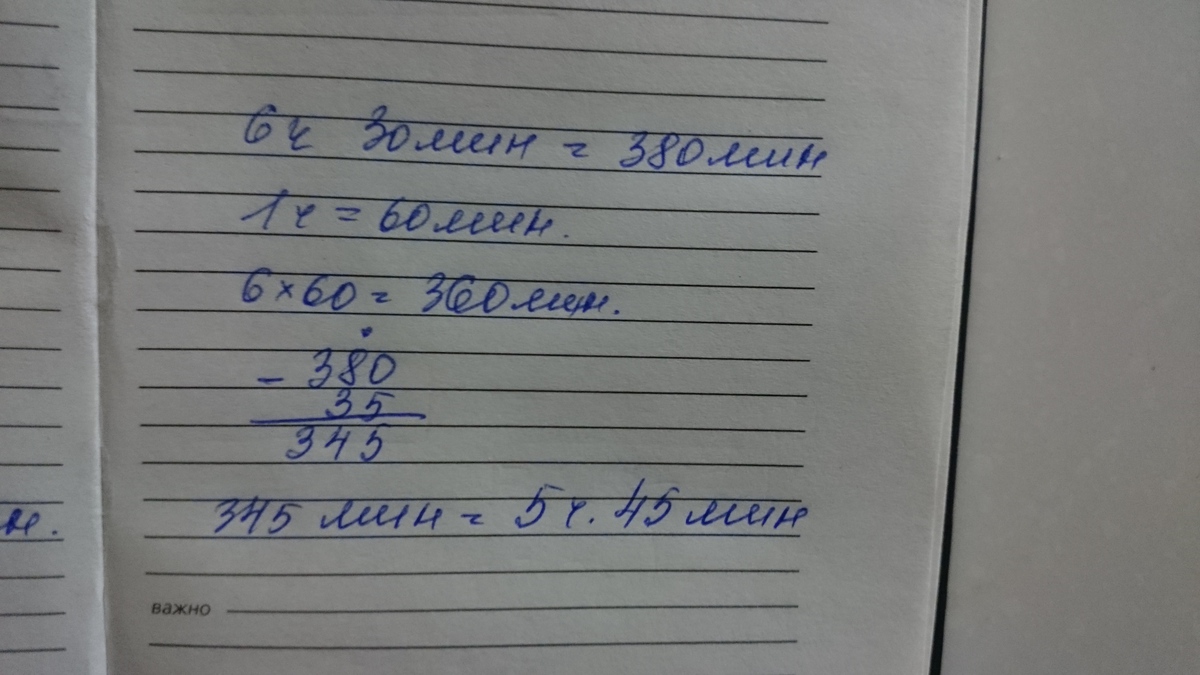 6ч 30мин = 380мин
1ч = 60мин.
6×60 = 360мин.
- 380
35
345
н.
345 мин = 5ч. 45мин
важно